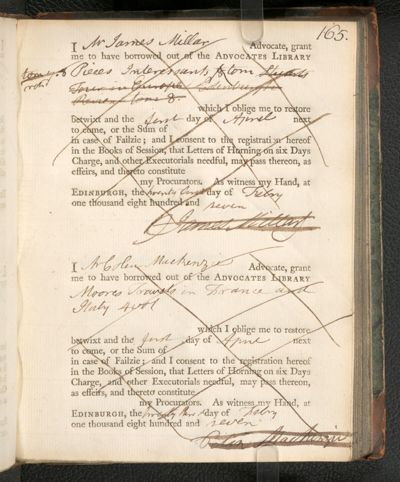 165.
I Mr James Millar Advocate, grant
me to have borrowed out of the ADVOCATES LIBRARY
Pieces Interessants
which I oblige me to restore
betwixt and the first day of April next
to come, or the Sum of
in case of Failzie; and I consent to the registration hereof
in the Books of Session, that Letters of Horning on six Days
Charge, and other Executorials needful, may pass thereon, as
effeirs, and thereto constitute
my Procurators. As witness my Hand, at
EDINBURGH, the day of Febry
one thousand eight hundred and seven
James Millar
I Mr Colin Mackenzie Advocate, grant
me to have borrowed out of the ADVOCATES LIBRARY
Moores Travels in France and
Italy 4 vol
which I oblige me to restore
betwixt and the first day of April next
to come, or the Sum of
in case of Failzie; and I consent to the registration hereof
in the Books of Session, that Letters of Horning on six Days
Charge, and other Executorials needful, may pass thereon, as
effeirs, and thereto constitute
my Procurators. As witness my Hand, at
EDINBURGH, the day of Febry
one thousand eight hundred and seven
Colin Mackenzie